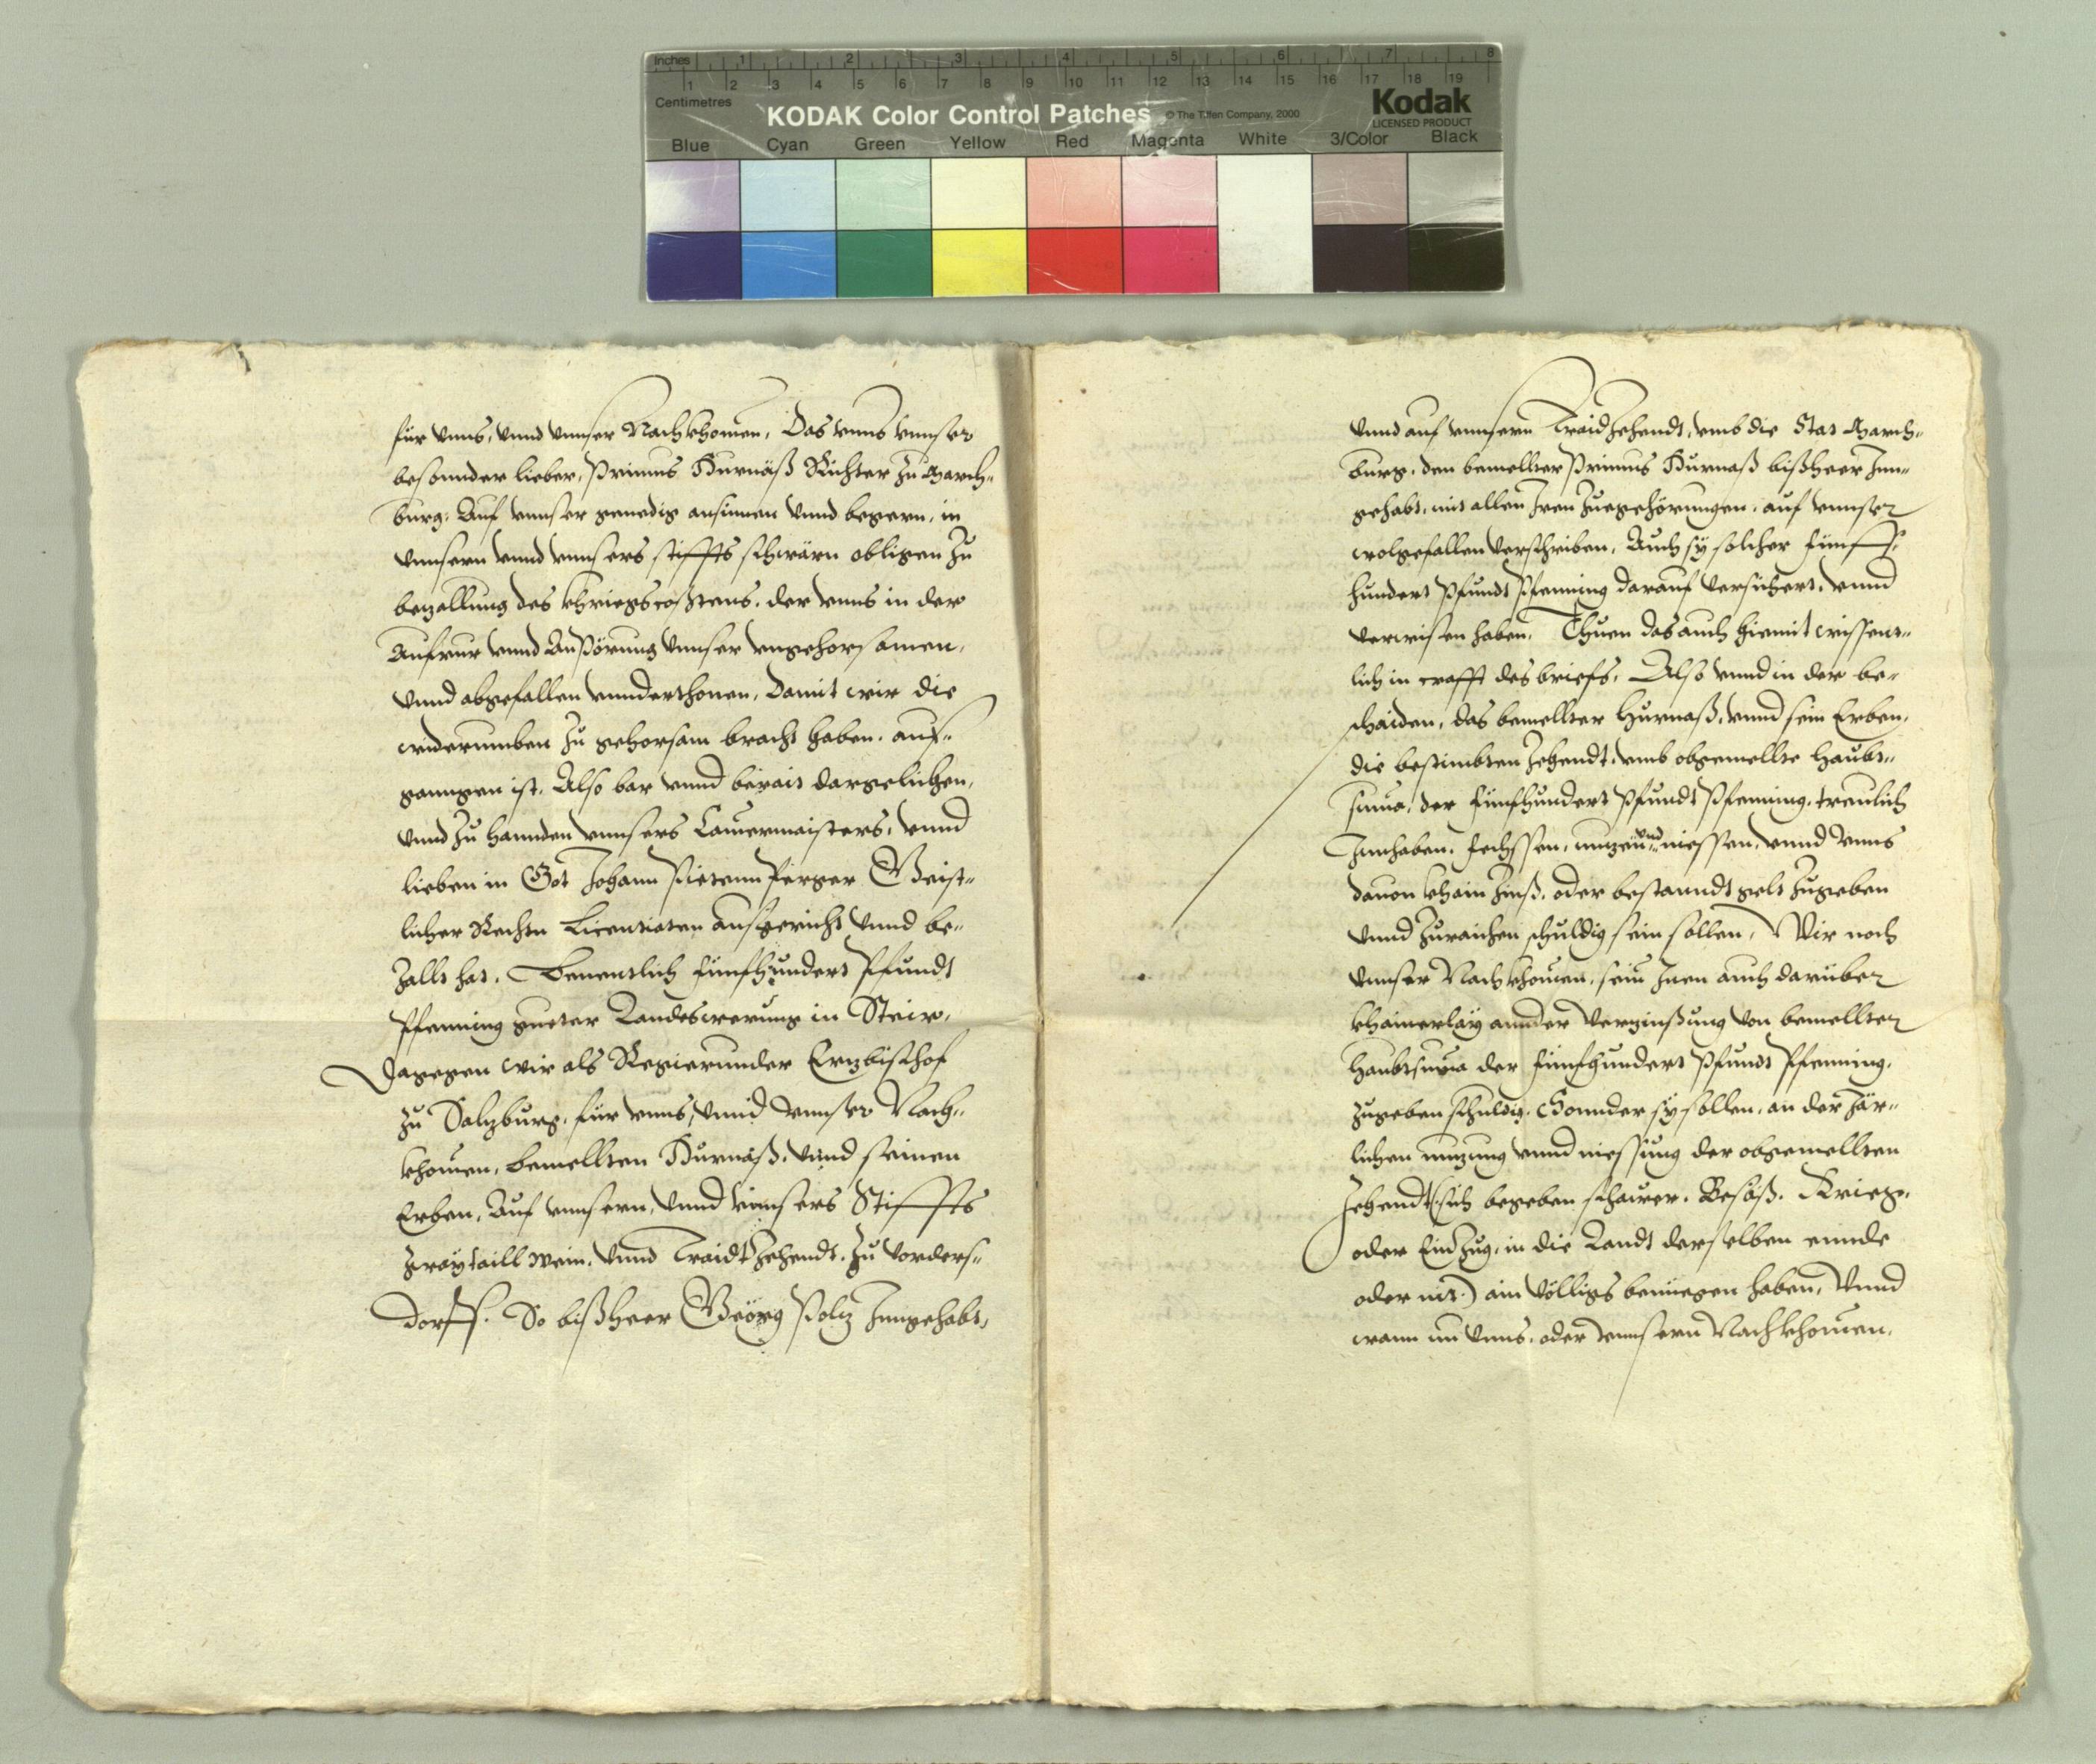 Inches 1 2 3 4 5 6 7 8
Centimetres 1 2 3 4 5 6 7 8 9 10 11 12 13 14 15 16 17 18 19
KODAK Color Control Patches © The Tiffen Company, 2000 Kodak
LICENSED PRODUCT
Blue Cyan Green Yellow Red Magenta White 3/Color Black
für vnns, vnnd vnnser Nachkhomen, Das vnns vnnser
besonnder lieber, Primus Hurnäß Richter zu March„
burg, Auf vnnser genedig ansinnen vnnd begern, in
vnnsern vnnd vnnsers stiffts schwärn obligen zu
bezallung des khriegscosstens, der vnns in der
Aufrur vnnd vnnser vngehorsamen,
vnnd abgefallen vnnderthonen, Damit wir die
widerumben zu gehorsam bracht haben, auf„
ganngen ist, Also bar vnnd berait dargelichen,
vnnd zu hannden vnnsers Camermaisters, vnnd
lieben in Got Johann Geist„
licher Rechtn Licentiaten ausgericht vnnd be„
zallt hat, Benentlich fünfhundert Pfundt
Pfenning gueter Landeswerung in Steir,
Dagegen wir als Regierunder Ertzbischof
zu Salzburg, für vnns, vnnd vnnser Nach„
khomen, bemellten Hurnäß, vnnd seinen
Erben, Auf vnnsern, vnnd vnnsers Stiffts
zwaytaill wein, vnnd Traidt zehendt, zu vorders„
dorff. So bißheer Geörg Inngehabt,
vnnd auf vnnsern Traidzehendt, vmb die Stat March„
burg, den bemellter Primus Hurnaß bißheer Inn„
gehabt, mit allen Iren zuegehörungen, auf vnnser
wolgefallen verschriben, Auch sy solcher fünff„
hundert Pfundt Pfenning darauf versichert, vnnd
verwisen haben, Thuen das auch hiemit wissent„
lich in crafft des briefs, Also vnnd in der be„
schaiden, das bemellter Hurnaß, vnnd sein Erben,
die bestimbten zehendt, vmb obgemellte haubt„
suma, der fünfhundert Pfundt Pfenning, treulich
Innhaben, fechssen, nutzen vnd niessen, vnnd vnns
dauon khain zinß, oder bestanndt gelt zugeben
vnnd zuraichen schuldig sein sollen, Wir noch
vnnser Nachkhomen, sein Inen auch darüber
khainerlay annder verzinßung von bemellter
haubtsuma der fünfhundert Pfundt Pfenning,
zugeben schuldig, Sonnder sy sollen, an der Jär„
lichen nutzung vnnd niessung der obgemellten
zehendt (: sich begeben schawer, Besäß, Krieg,
oder Einzug, in die Landt derselben ennde
oder nit :) ain völligs benüegen haben, Vnnd
wann nu vnns, oder vnnsern Nachkhomen,